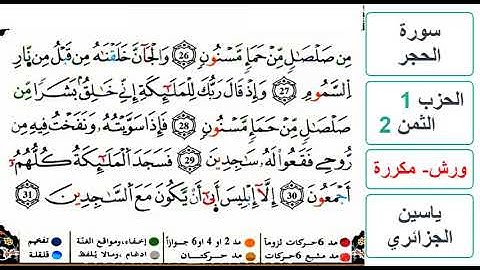 مِن صَلْصَٰلٍ مِّنْ حَمَإٍ مَّسْنُونٍ 26 وَالْجَآنَّ خَلَقْنَٰهُ مِن قَبْلُ مِن نَّارِ
اِ۬لسَّمُومِ 27 وَإِذْ قَالَ رَبُّكَ لِلْمَلَٰٓئِكَةِ إِنِّے خَٰلِقُۢ بَشَراٗ مِّن
صَلْصَٰلٍ مِّنْ حَمَإٍ مَّسْنُونٍ 28 فَإِذَا سَوَّيْتُهُۥ وَنَفَخْتُ فِيهِ مِن
رُّوحِے فَقَعُواْ لَهُۥ سَٰجِدِينَ 29 فَسَجَدَ اَ۬لْمَلَٰٓئِكَةُ كُلُّهُمُۥٓ
أَجْمَعُونَ 30 إِلَّآ إِبْلِيسَ أَب۪ىٰٓ أَنْ يَّكُونَ مَعَ اَ۬لسَّٰجِدِينَ 31
مد 6 حركات لزوماً
مد 2 او 4 او 6 جوازاً
إخفاء، ومواقع الغنّة
تفخيم
مد مشبع 6 حركات
مد حركتان
ادغام، ومالا يلفظ
قلقلة
سورة
الحجر
الحزب 1
الثمن 2
ورش- مكررة
ياسين
الجزائري